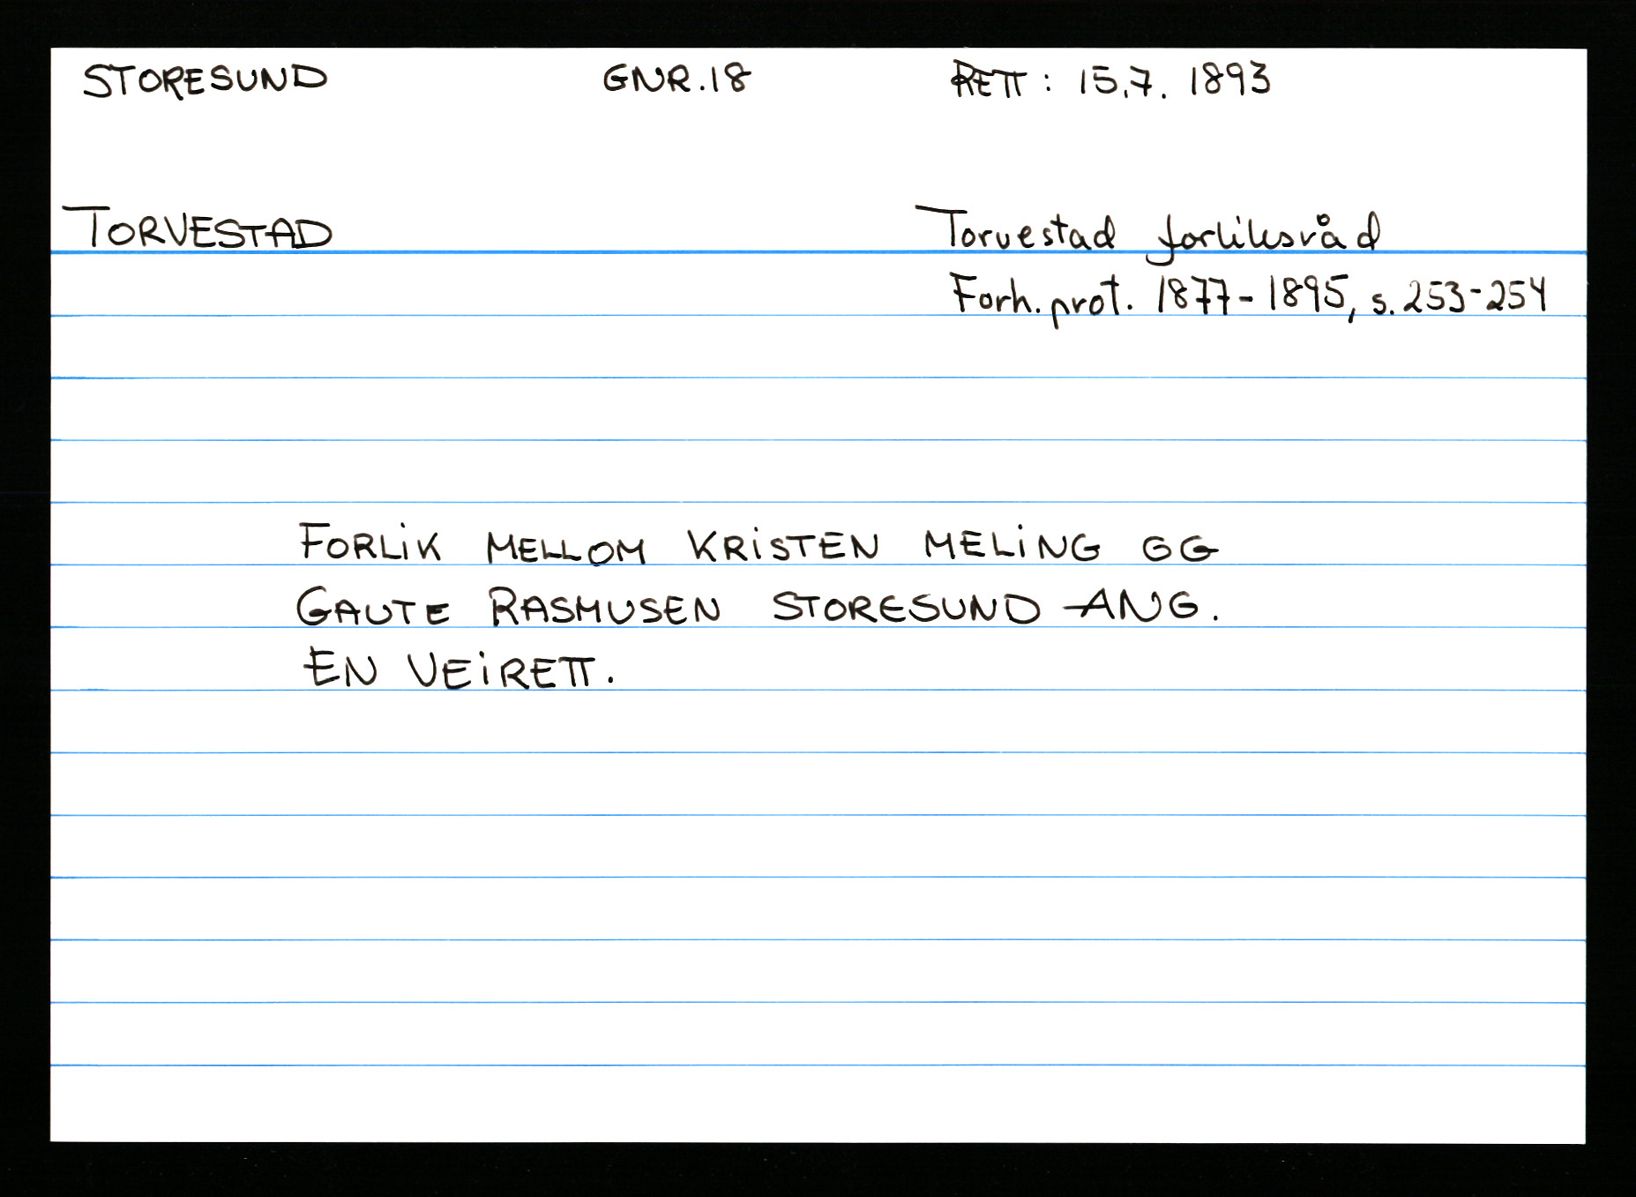 STORESUND GNR.18 RETT: 15.7. 1893
TORVESTAD Torvestad forliksråd
Forh. prot. 1877-1895, s. 253-254
FORLIK MELLOM KRISTEN MELING OG
GAUTE RASMUSEN STORESUND ANG.
EN VEIRETT.